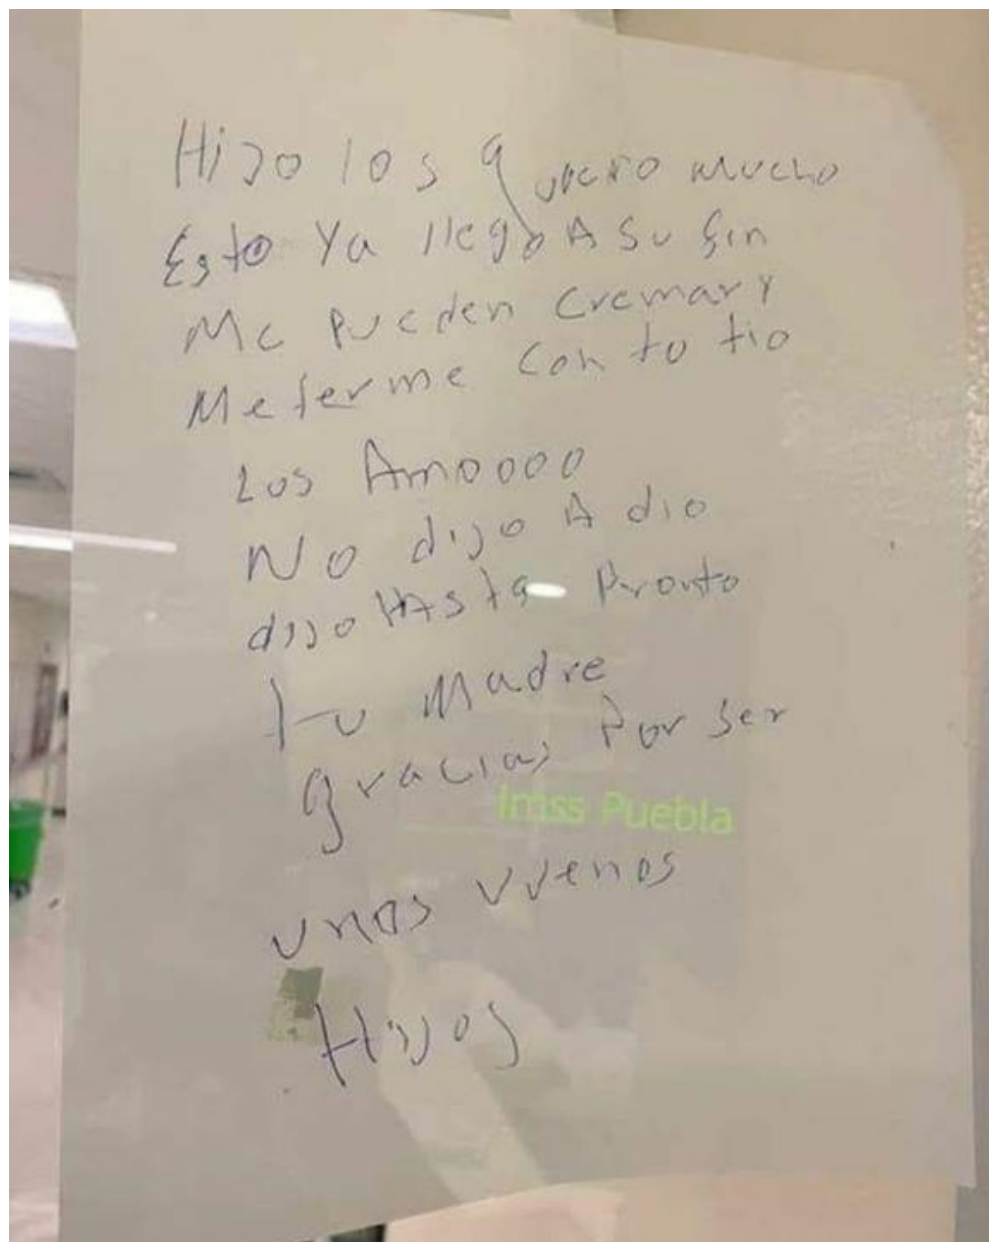 Hijo los quiero mucho
Esto Ya llego A Su fin
Me pueden Cremar Y
Meterme Con tu tio
Los Amoooo
No dijo A dio
dijo HAsta Pronto
tu Madre
gracias Por Ser
Imss Puebla
unos vvenos
Hijos